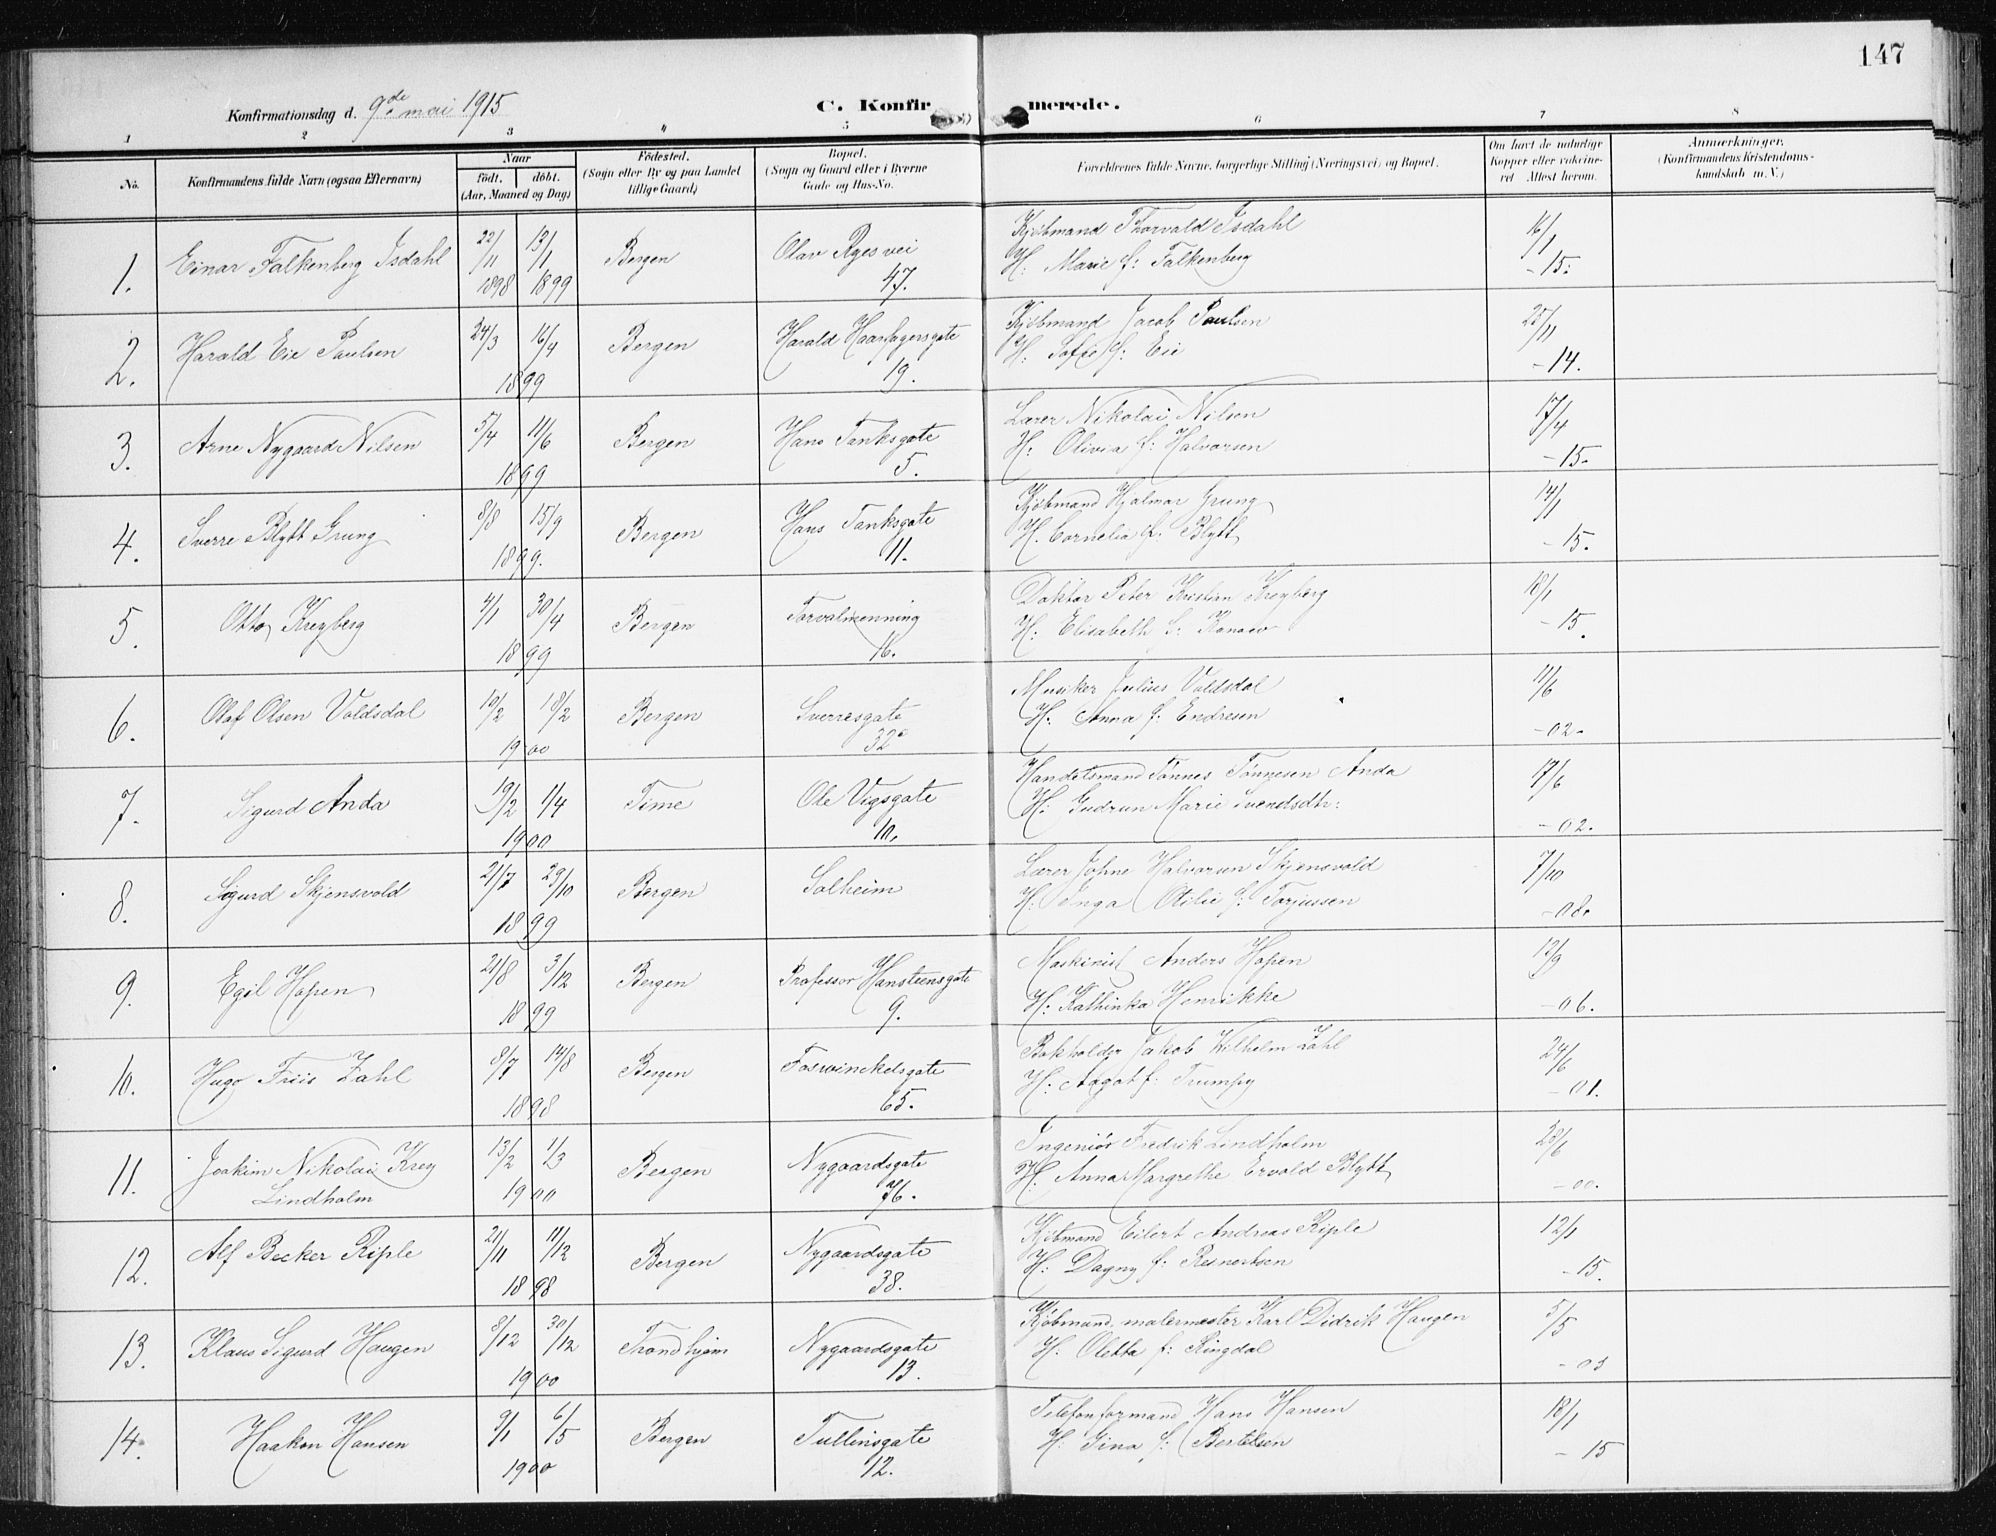 147
Konfirmationsdag d. 9de mai 1915
C. Konfirmerede.
1 2 3 4 5 6 7 8
No.
Konfirmandens fulde Navn (ogsaa Efternavn)
Naar
født. døbt.
(Aar, Maaned og Dag)
Fødested.
(Sogn eller By og paa Landet
tillige Gaard)
Bopæl.
(Sogn og Gaard eller i Byerne
Gade og Hus-No.
Forældrenes fulde Navne, borgerlige Stilling (Næringsvei) og Bopæl.
Om havt de naturlige
Kopper eller vakcine-
ret Attest herom.
Anmærkninger.
(Konfirmandens Kristendoms-
kundskab m. V.)
1. Einar Falkenberg Isdahl 22/11 1898 13/1 1899 Bergen Olav Ryesvei 47. Kjøbmand Thorvald Isdahl
H: Marie f: Falkenberg 16/1 -15.
2. Harald Eie Paulsen 24/3 16/4 1899 Bergen Harald Haarfagersgate 19. Kjøbmand Jacob Paulsen
H: Sofie f: Eie 25/11 -14.
3. Arne Nygaard Nilsen 5/4 11/6 1899 Bergen Hans Tanksgate 5. Lærer Nikolai Nilsen
H: Olivia f: Halvorsen 17/4 -15.
4. Sverre Blytt Grung 8/8 15/9 1899. Bergen Hans Tanksgate 11. Kjøbmand Hjalmar Grung
H. Cornelia f. Blytt 14/1 -15.
5. Otto Kreyberg 30/4 1899 Bergen Torvalmenning 16. Doktor Peter Kristian Kreyberg
H: Elisabeth f: Konow 18/1 -15.
6. Olaf Olsen Valdsdal 10/2 18/2 1900 Bergen Sverresgate 32 Musiker Julius Valdsdal
H: Anna f: Endresen 11/6 -02.
7. Sigurd Anda 19/2 1/4 1900 Time Ole Vigsgate 10. Handelsmand Tønnes Tønnesen Anda
H: Gudrun Marie Svendsdtr: 17/6 -02.
8. Sigurd Skjensvold 21/7 29/10 1899 Bergen Solheim Lærer Johne Halvorsen Skjensvold
H: Inga Otilie f: Torjussen 7/10 -08.
9. Egil Hopen 21/8 3/12 1899 Bergen Professor Hansteensgate 9. Maskinist Anders Hopen
H: Kathinka Henrikke 13/9 -06.
10. Hugo Friis Zahl 8/7 14/8 1898 Bergen Fosswinckelsgate 65. Bokholder Jakob Wilhelm Zahl
H: Aagot f: Trumpy 24/6 -01.
11. Joakim Nikolai Krey
Lindholm 13/2 1/3 1900 Bergen Nygaardsgate 76. Ingeniør Fredrik Lindholm
H: Anna Margrethe Ervald Blytt 28/6 -00.
12. Alf Becker Riple 21/11 11/12 1898 Bergen Nygaardsgate 38. Kjøbmand Eilert Andreas Riple
H: Dagny f: Reinertsen 12/1 -15.
13. Klaus Sigurd Haugen 8/12 30/12 1900 Trondhjem Nygaardsgate 13. Kjøbmand, malermester Karl Didrik Haugen
H: Oletta f: Ringdal 5/5 -03
14. Haakon Hansen 9/1 6/5 1900 Bergen Tullinsgate 12. Telefonformand Hans Hansen
H: Gina f: Bertelsen 18/1 -15